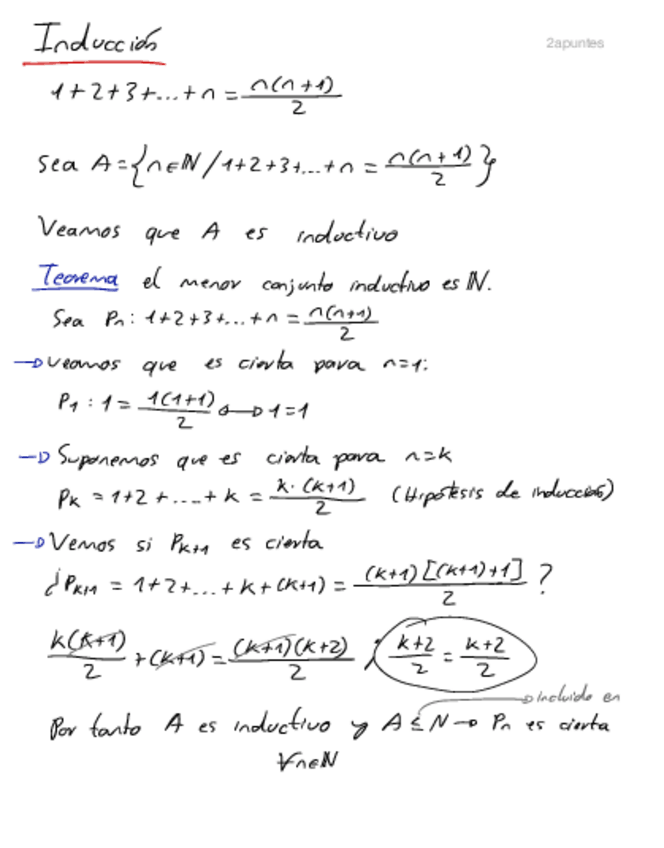 Inducción
2apuntes
1+2+3+...+n = n(n+1)/2
Sea A = {n∈ℕ / 1+2+3+...+n = n(n+1)/2}
Veamos que A es inductivo
Teorema el menor conjunto inductivo es ℕ.
Sea Pn: 1+2+3+...+n = n(n+1)/2
→ Veamos que es cierta para n=1:
P1: 1 = 1(1+1)/2 ↔ 1=1
→ Suponemos que es cierta para n=k
Pk = 1+2+....+k = k·(k+1)/2 (Hipótesis de inducción)
→ Vemos si Pk+1 es cierta
¿Pk+1 = 1+2+...+k+(k+1) = (k+1)[(k+1)+1]/2 ?
k(k+1)/2 + (k+1) = (k+1)(k+2)/2 ; k+2/2 = k+2/2
→ incluido en
Por tanto A es inductivo y A ⊆ N → Pn es cierta
∀n∈ℕ